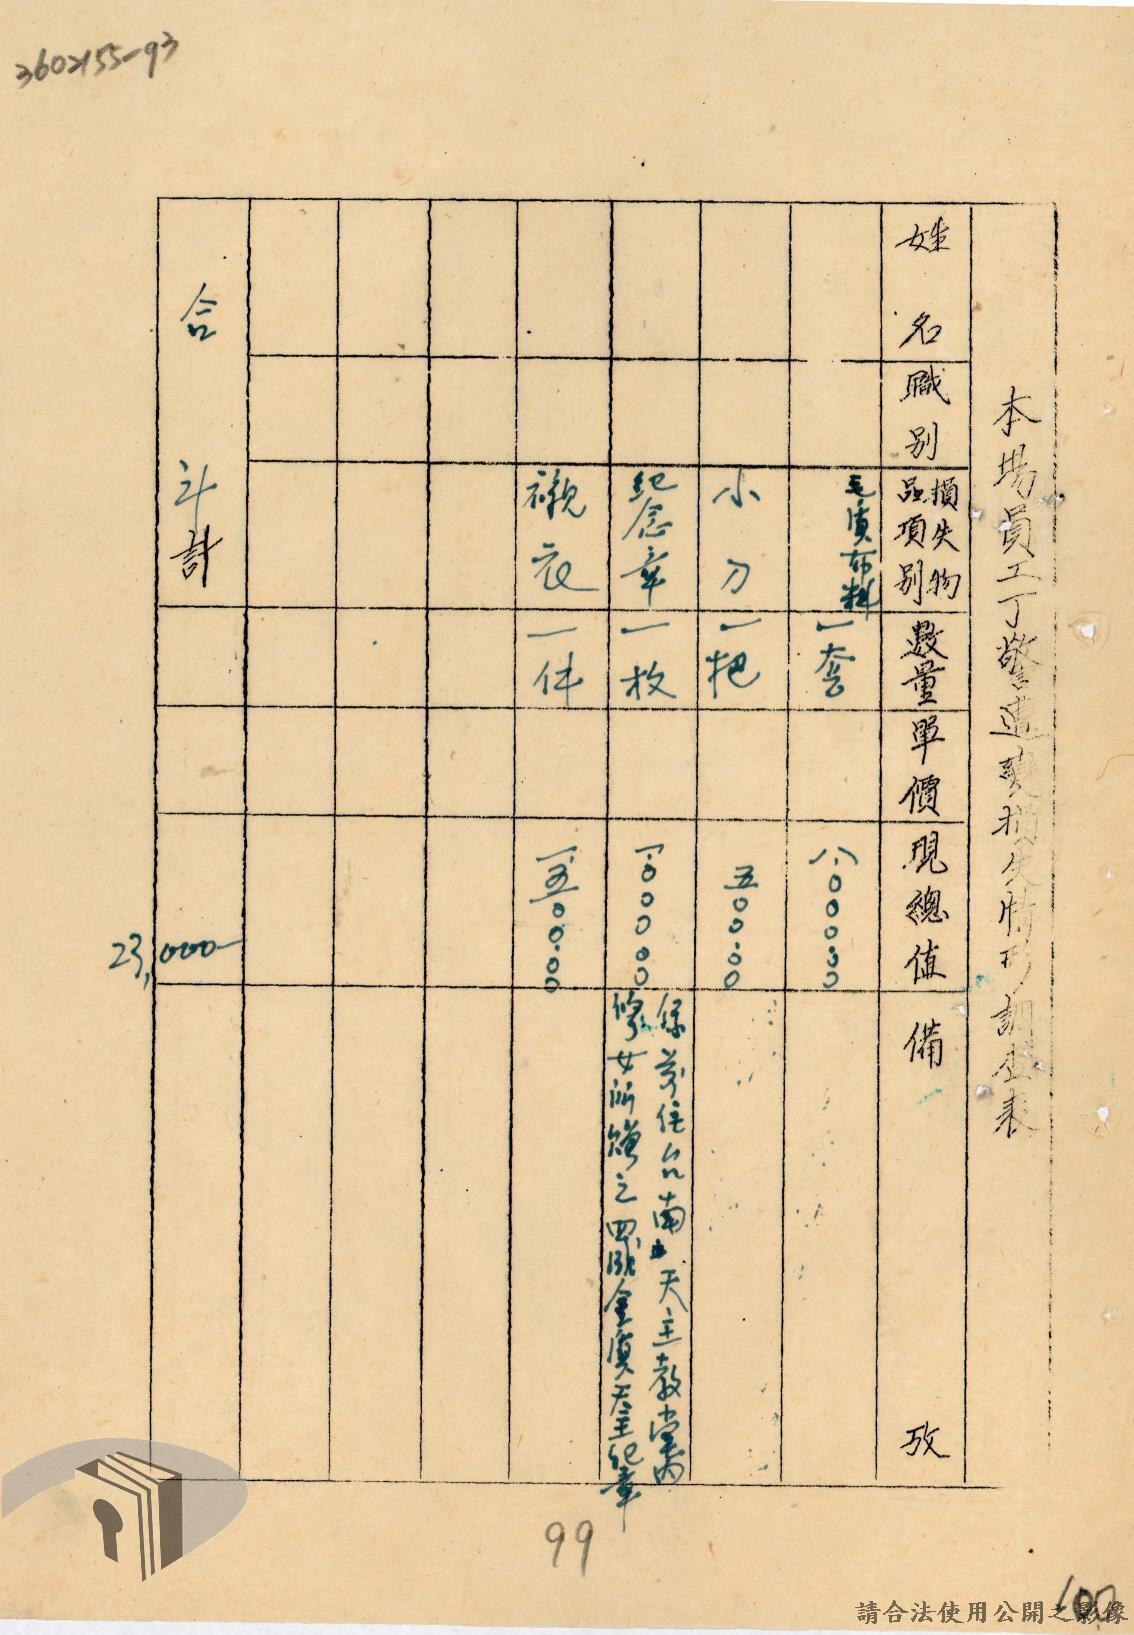 3602155-93
本場員工丁警遭變損失情形調查表
姓名
職別
損失物
品項別
數量
單價
現總值
備攷
毛質布料
一套
八.〇〇〇.〇〇
小刀
一把
五〇〇.〇〇
紀念章
一枚
係前住台南天主教堂內
修女所贈之四兩金質天主紀章
襯衣
一件
一.五〇〇.〇〇
合計
23,000-
99
107
請合法使用公開之影像